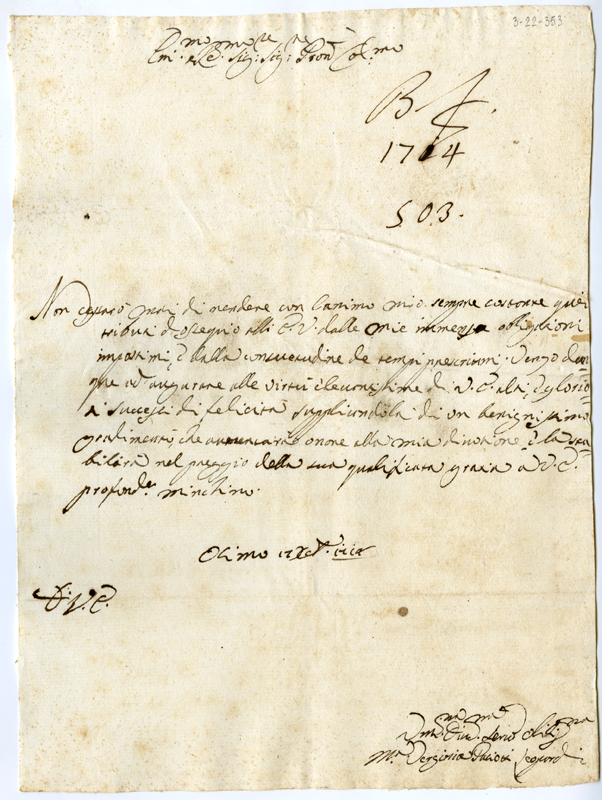 3-22-353
Sig: Sig: Pron Col.mo
B
1714
S. 03.
Non cessarò mai di rendere con l'animo mio sempre costante quei
tributi d'ossequio all' E.V. dalle mie immense obligationi
impostimi, è dalla consuetudine de tempi prescrittimi. Vengo dun=
que ad augurare alle virtù elevatissime di V.E. alti, è glorio=
si successi di felicità supplicandola di un benignissimo
gradimento, che aumentarà onore alla mia divotione, è la sta=
bilirà nel preggio della sua qualificata gratia a V.E.
profond.e m'inchino.
Osimo
D. V. E.
Um.ma Div.ma Serva Oblig.ma
M.a Verginia